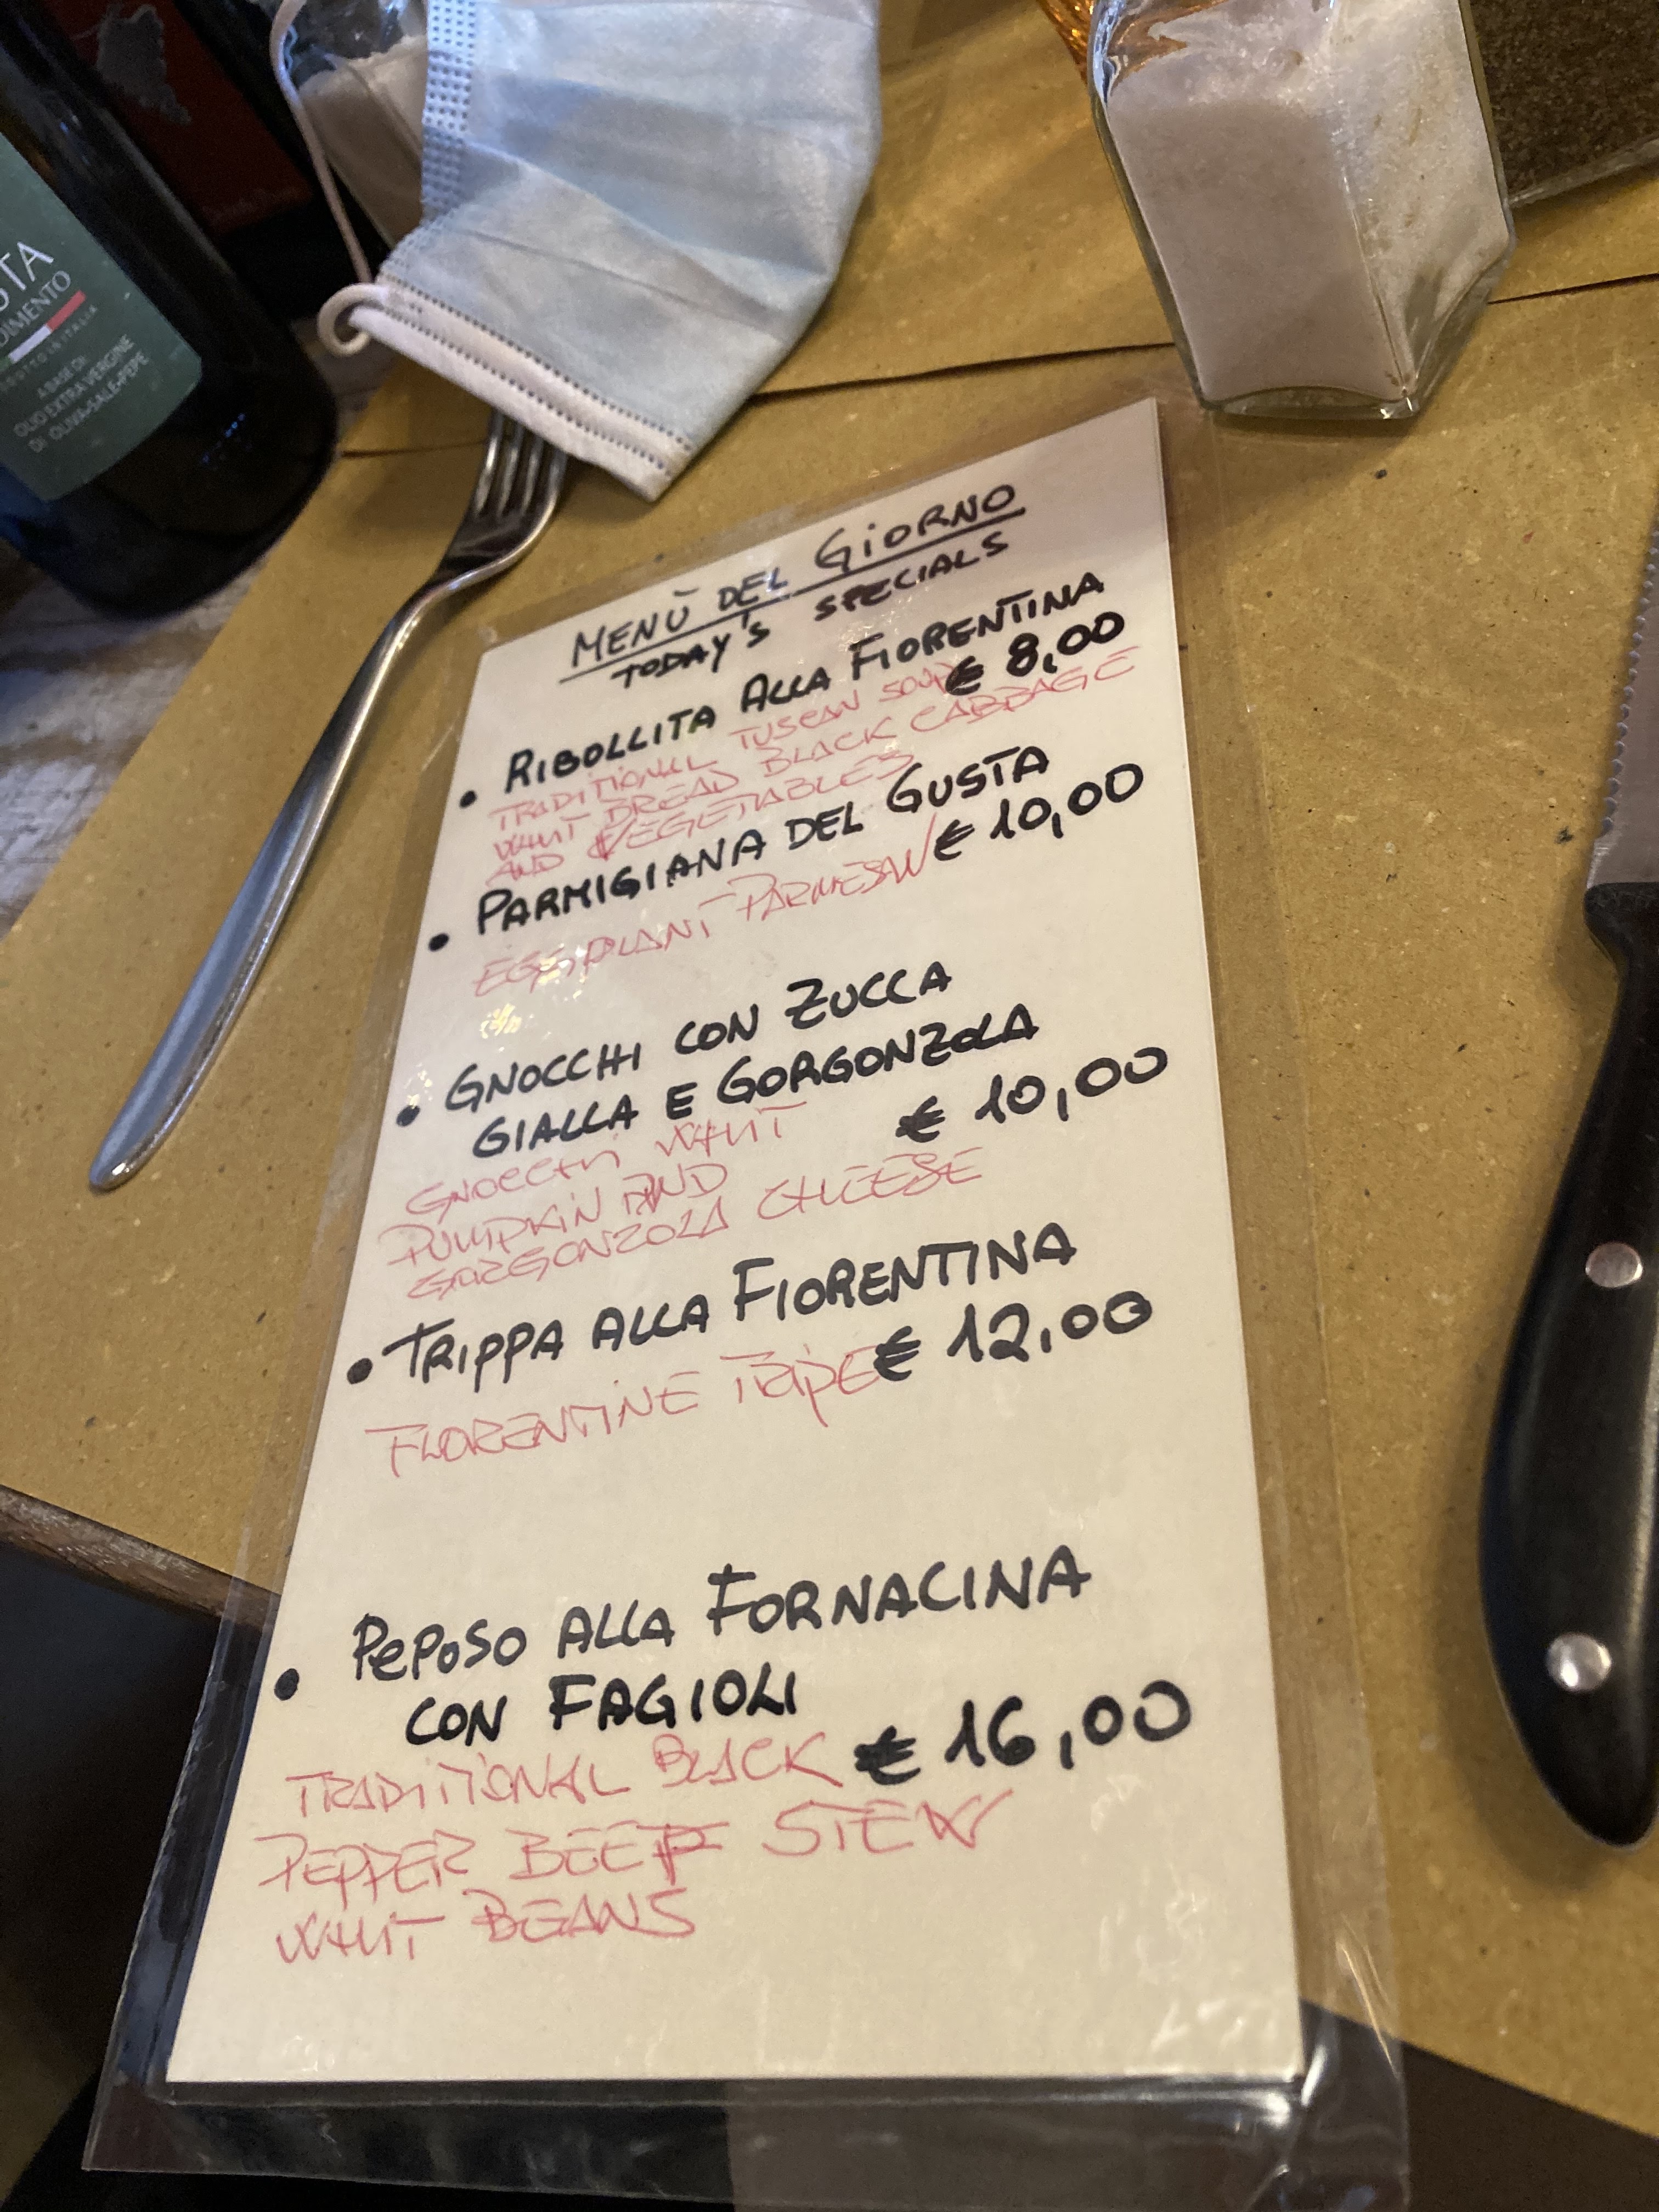 OTA
DIMENTO
A BASE DI:
OLIO EXTRA VERGINE
DI OLIVA-SALE-PEPE
MENÙ DEL GIORNO
TODAY'S SPECIALS
• RIBOLLITA ALLA FIORENTINA
€ 8,00
TRADITIONAL TUSCAN SOUP
WHIT BREAD BLACK CABBAGE
AND VEGETABLES
• PARMIGIANA DEL GUSTA
€ 10,00
EGGPLANT PARMESAN
• GNOCCHI CON ZUCCA
GIALLA E GORGONZOLA
€ 10,00
GNOCCHI WHIT
PUMPKIN AND
GORGONZOLA CHEESE
• TRIPPA ALLA FIORENTINA
€ 12,00
FLORENTINE TRIPE
• PEPOSO ALLA FORNACINA
CON FAGIOLI
€ 16,00
TRADITIONAL BLACK
PEPPER BEEF STEW
WHIT BEANS